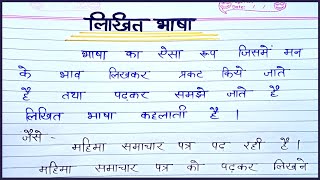 लिखित भाषा
भाषा का ऐसा रूप जिसमें मन
के भाव लिखकर प्रकट किये जाते
है तथा पढकर समझे जाते है
लिखित भाषा कहलाती है ।
जैसे -
महिमा समाचार पत्र पढ रही है ।
महिमा समाचार पत्र को पढकर लिखने